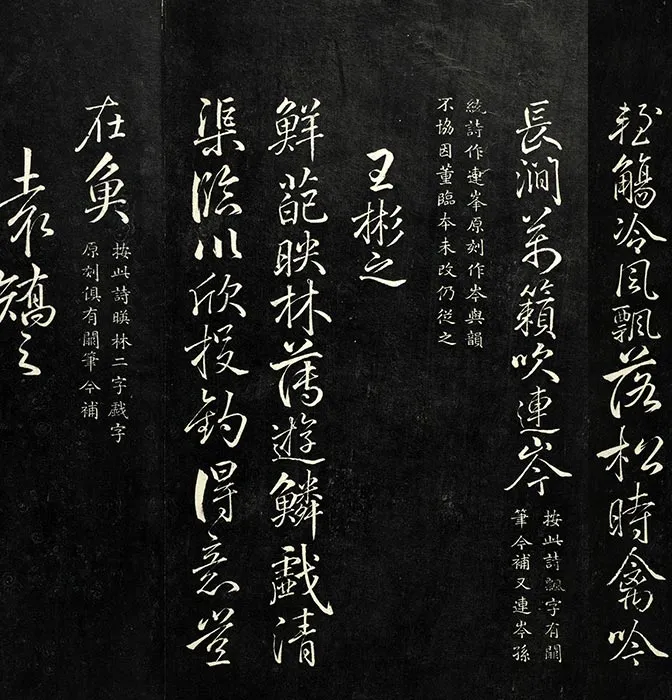 輕觴冷風飄落松時禽吟
長澗萬籟吹連岑
按此詩飄字有闕
筆今補又連岑孫
統詩作連峯原刻作岑與韻
不協因董臨本未改仍從之
王彬之
鮮葩映林薄遊鱗戲清
渠臨川欣投釣得意豈
在魚
按此詩暎林二字戲字
原刻俱有闕筆今補
袁矯之